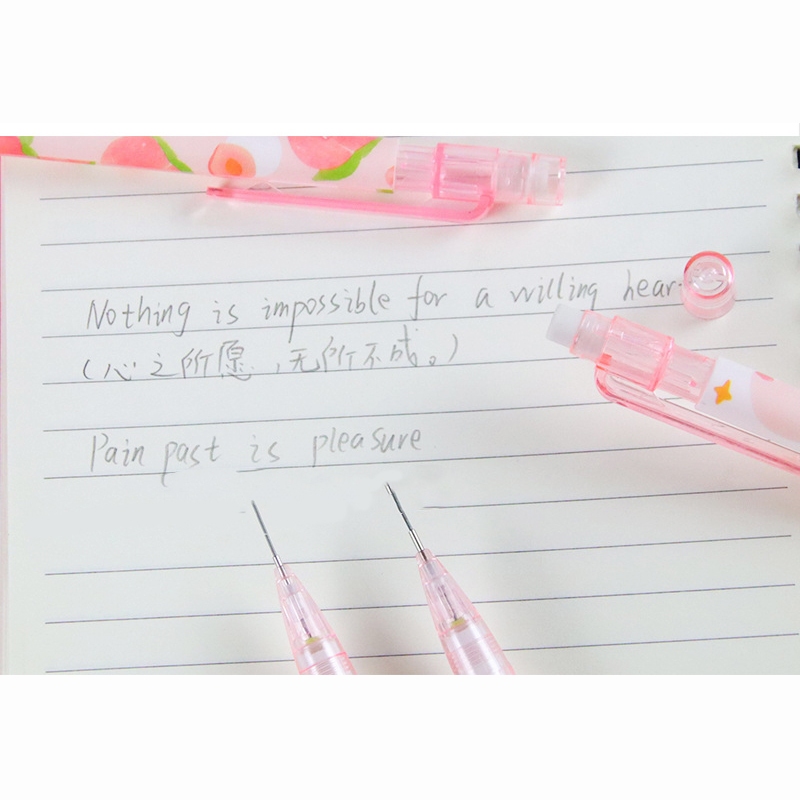 Nothing is impossible for a willing hear
(心之所愿,无所不成。)
Pain past is pleasure